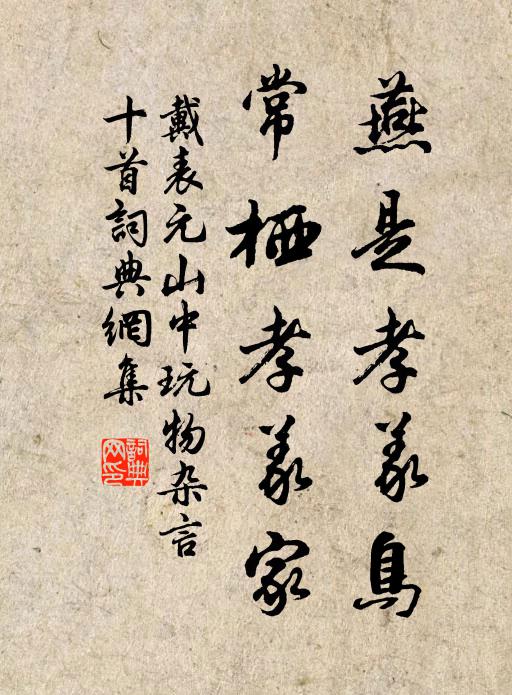 燕是孝义鳥
常栖孝义家
戴表元山中玩物杂言
十首詞典網集
詞典网印